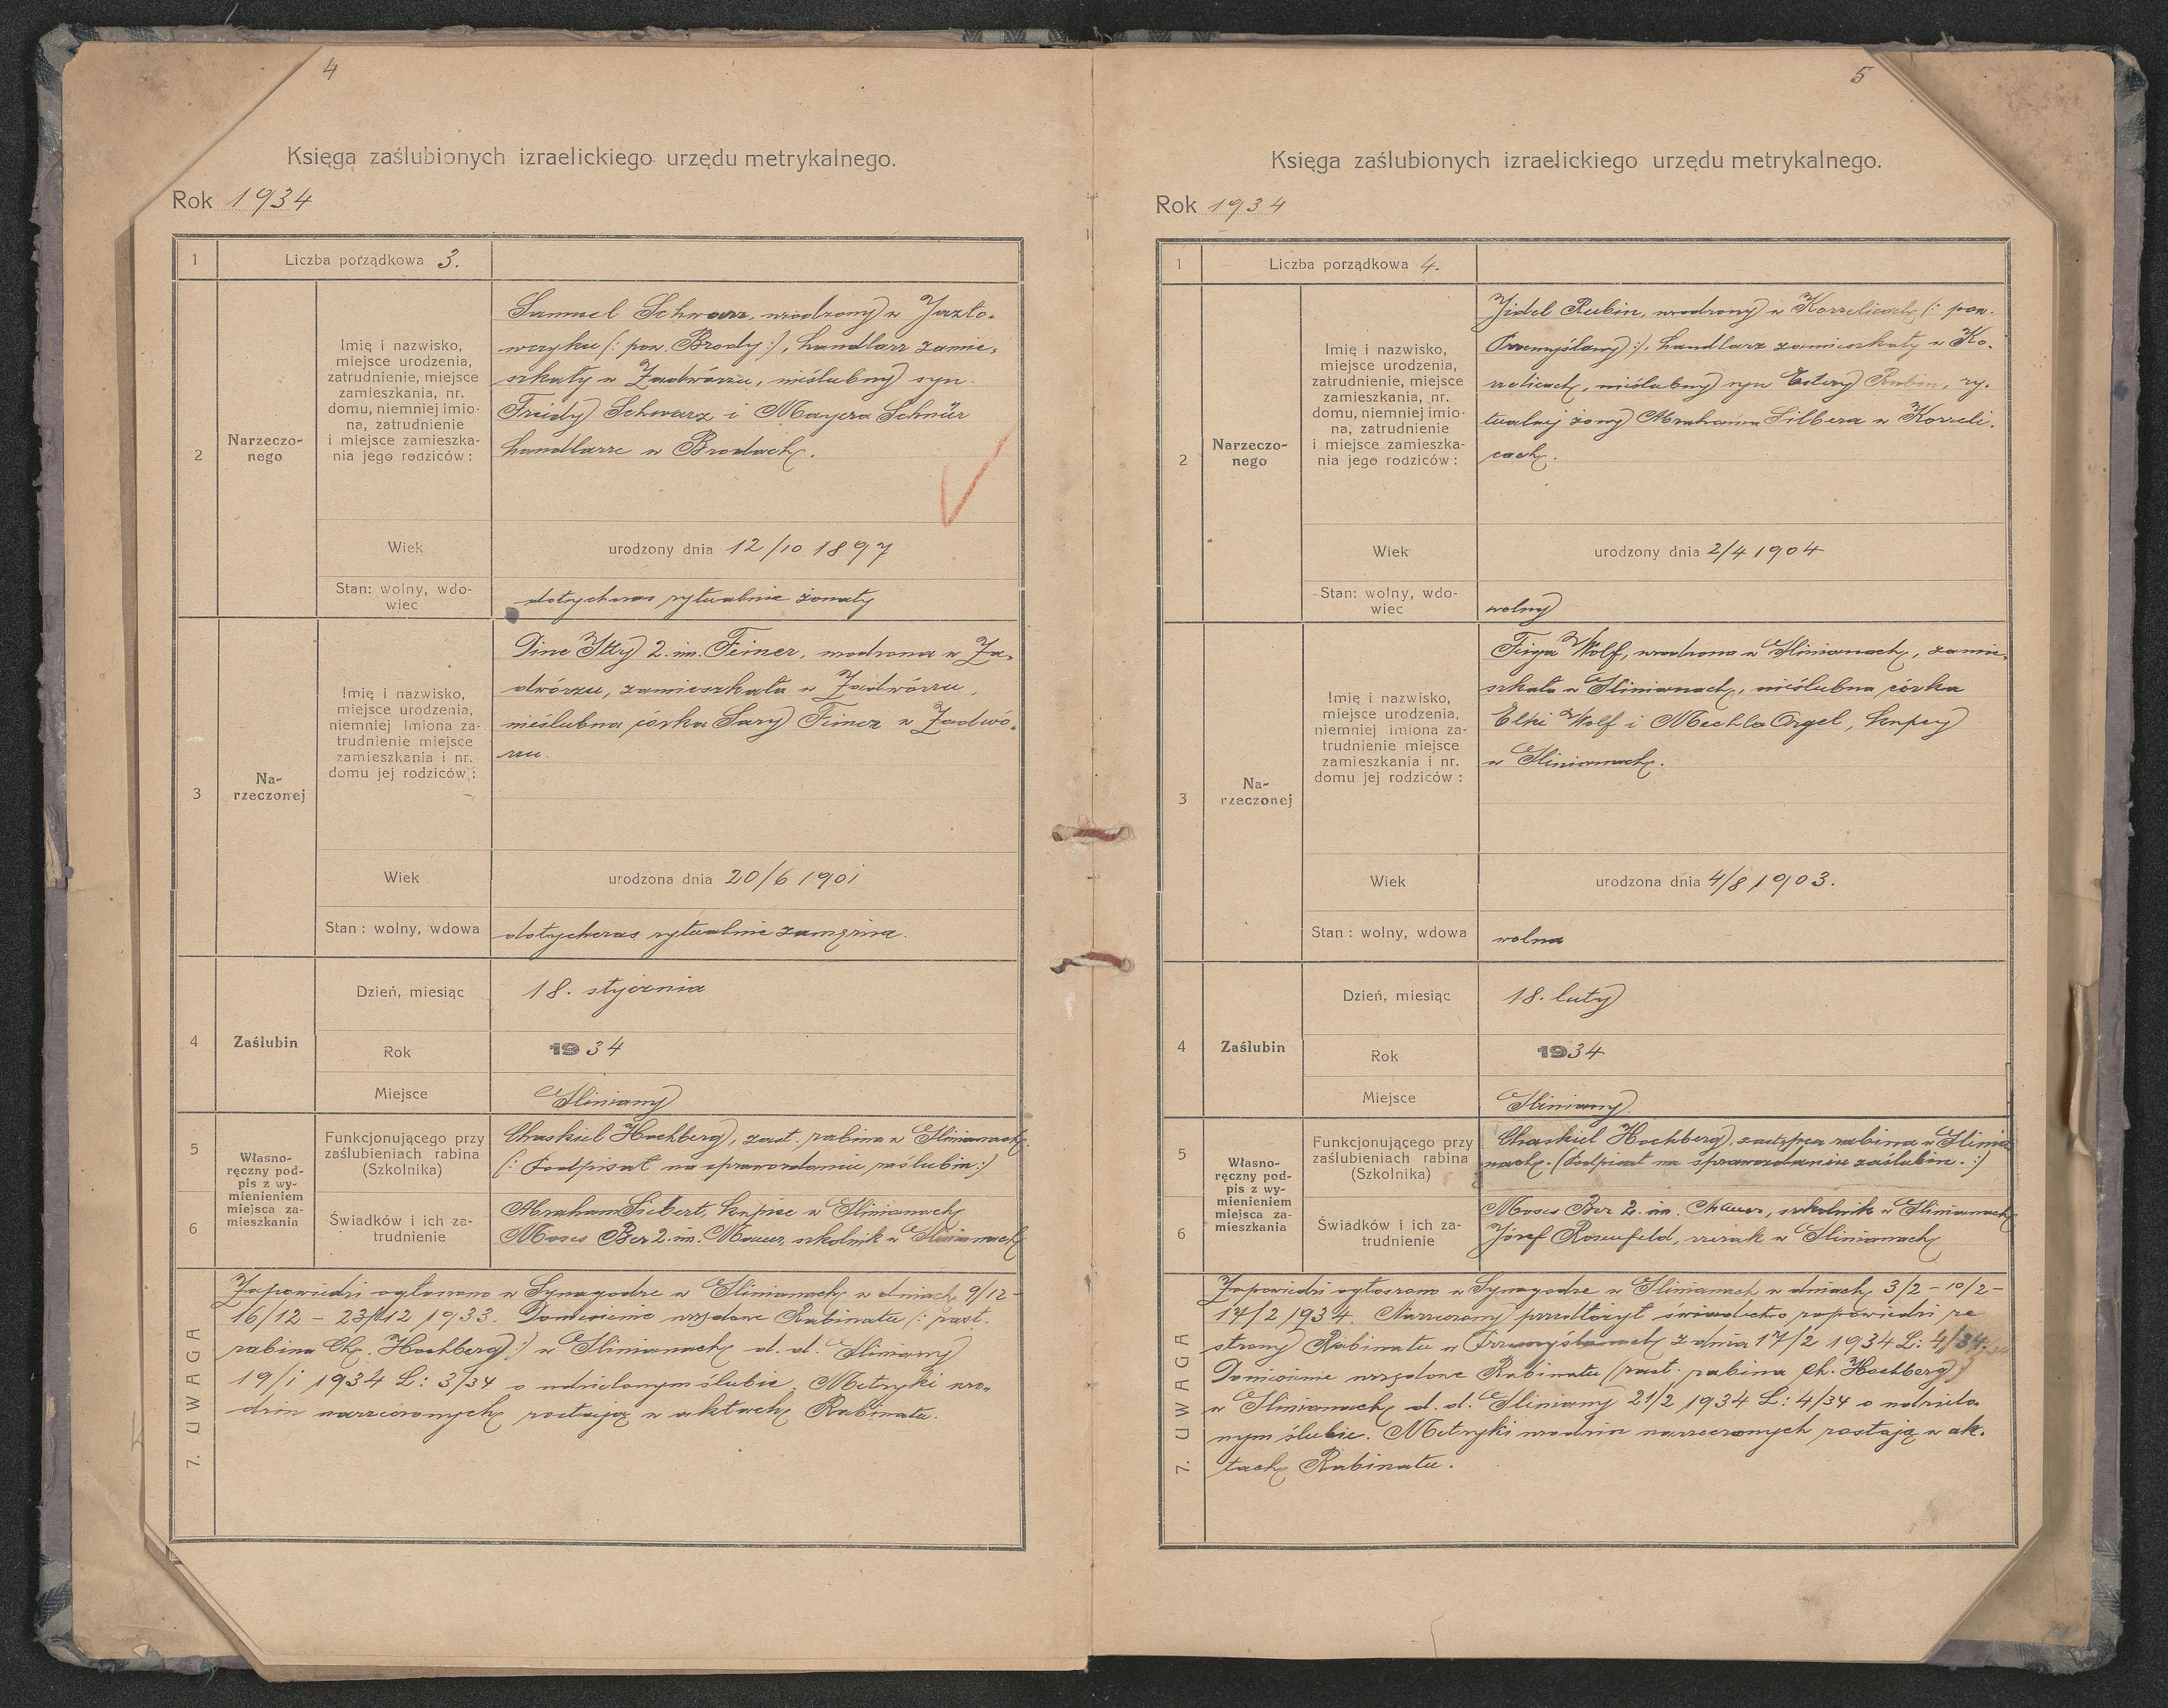 4
Księga zaślubionych izraelickiego urzędu metrykalnego.
Rok 1934
1
Liczba porządkowa 3.
2
Narzeczo-
nego
Imię i nazwisko,
miejsce urodzenia,
zatrudnienie, miejsce
zamieszkania, nr.
domu, niemniej imio-
na, zatrudnienie
i miejsce zamieszka-
nia jego rodziców :
Samuel Schwarz, urodzony w Jazło-
wczyku (: pow. Brody :), handlarz zamie-
szkały w Zadwórzu, nieślubny syn
Freidy Schwarz i Mayera Schnür
handlarze w Brodach.
Wiek
urodzony dnia 12/10 1897
Stan: wolny, wdo-
wiec
dotychczas rytualnie żonaty
3
Na-
rzeczonej
Imię i nazwisko,
miejsce urodzenia,
niemniej imiona za-
trudnienie miejsce
zamieszkania i nr.
domu jej rodziców :
Dine Itty 2. im. Feiner, urodzona w Za-
dwórzu, zamieszkała w Zadwórzu,
nieślubna córka Sary Feiner w Zadwó-
rzu.
Wiek
urodzona dnia 20/6 1901
Stan : wolny, wdowa
dotychczas rytualnie zamężna.
4
Zaślubin
Dzień, miesiąc
18. stycznia
Rok
1934
Miejsce
Gliniany
5
6
Własno-
ręczny pod-
pis z wy-
mienieniem
miejsca za-
mieszkania
Funkcjonującego przy
zaślubieniach rabina
(Szkolnika)
Chaskiel Hochberg, zast. rabina w Glinianach
(: Podpisał na sprawozdanie zaślubin :)
Świadków i ich za-
trudnienie
Abraham Siebert, kupiec w Glinianach
Moses Ber 2. im. Mauer, szkolnik w Glinianach
7. UWAGA
Zapowiedzi ogłoszono w Synagodze w Glinianach w dniach 9/12 -
16/12 - 23/12 1933. Doniesienie urzędowe Rabinatu (: zast.
rabina Ch. Hochberg :) w Glinianach d. d. Gliniany
19/1 1934 L: 3/34 o udzielonym ślubie. Metryki uro-
dzin narzeczonych zostają w aktach Rabinatu.
5
Księga zaślubionych izraelickiego urzędu metrykalnego.
Rok 1934
1
Liczba porządkowa 4.
2
Narzeczo-
nego
Imię i nazwisko,
miejsce urodzenia,
zatrudnienie, miejsce
zamieszkania, nr.
domu, niemniej imio-
na, zatrudnienie
i miejsce zamieszka-
nia jego rodziców :
Jidel Rubin, urodzony w Korzelicach (: pow.
Przemyślany :), handlarz zamieszkały w Ko-
rzelicach, nieślubny syn Estery Rubin, ry-
tualnej żony Abrahama Silbera w Korzeli-
cach.
Wiek
urodzony dnia 2/4 1904
Stan: wolny, wdo-
wiec
wolny
3
Na-
rzeczonej
Imię i nazwisko,
miejsce urodzenia,
niemniej imiona za-
trudnienie miejsce
zamieszkania i nr.
domu jej rodziców :
Feiga Wolf, urodzona w Glinianach, zamie-
szkała w Glinianach, nieślubna córka
Elki Wolf i Mechla Orgel, kupcy
w Glinianach.
Wiek
urodzona dnia 4/8 1903.
Stan : wolny, wdowa
wolna
4
Zaślubin
Dzień, miesiąc
18. luty
Rok
1934
Miejsce
Gliniany
5
6
Własno-
ręczny pod-
pis z wy-
mienieniem
miejsca za-
mieszkania
Funkcjonującego przy
zaślubieniach rabina
(Szkolnika)
Chaskiel Hochberg, zastępca rabina w Glinia-
nach. (Podpisał na sprawozdaniu zaślubin. :)
Świadków i ich za-
trudnienie
Moses Ber 2. im. Mauer, szkolnik w Glinianach
Józef Rosenfeld, rzezak w Glinianach
7. UWAGA
Zapowiedzi ogłoszono w Synagodze w Glinianach w dniach 3/2 - 10/2 -
17/2 1934. Narzeczony przedłożył świadectwo zapowiedzi ze
strony Rabinatu w Przemyślanach z dnia 17/2 1934 L: 4/34.
Doniesienie urzędowe Rabinatu (zast. rabina Ch. Hochberg)
w Glinianach d. d. Gliniany 21/2 1934 L: 4/34 o udzielo-
nym ślubie. Metryki urodzin narzeczonych zostają w ak-
tach Rabinatu.